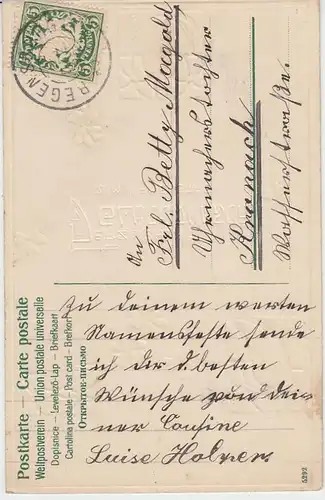 REGEN
5
Postkarte – Carte postale
Weltpostverein – Union postale universelle
Dopisnice – Levelező-Lap – Briefkaart
Cartolina postale – Post card – Brefkort
Открытое письмо
An
Frl. Betty Magold
Uhrmacherstochter
Kronach
Zu deinem werten
Namensfeste sende
ich dir d. besten
Wünsche von dei-
ner Cousine
Luise
5292